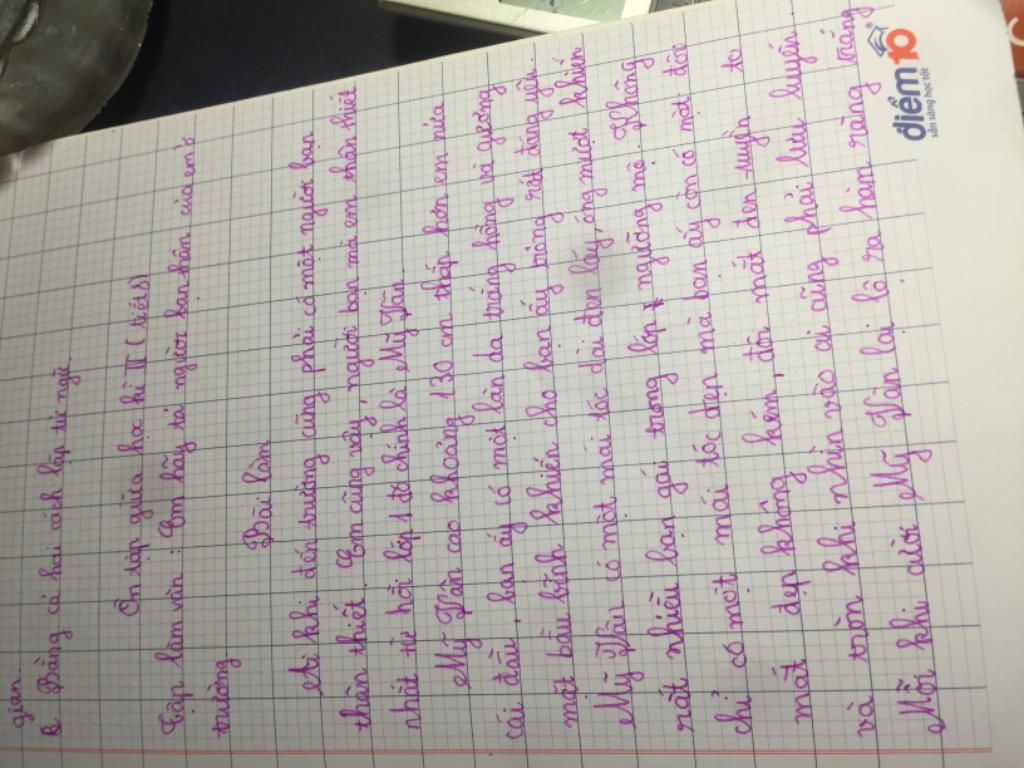 gian.
b. Bằng cả hai cách lặp từ ngữ
Ôn tập giữa học kì II (tiết 6)
Tập làm văn: Em hãy tả người bạn thân của em ở
trường
Bài làm
Ai khi đến trường cũng phải có một người bạn
thân thiết. Em cũng vậy, người bạn mà em thân thiết
nhất từ hồi lớp 1 đó chính là Mỹ Vân.
Mỹ Vân cao khoảng 130 cm thấp hơn em nửa
cái đầu, bạn ấy có một làn da trắng hồng và gương
mặt bầu bĩnh khiến cho bạn ấy trông rất đáng yêu.
Mỹ Vân có một mái tóc dài đen láy, óng mượt khiến
rất nhiều bạn gái trong lớp ngưỡng mộ. Không
chỉ có một mái tóc đẹp mà bạn ấy còn có một đôi
mắt đẹp không kém, đôi mắt đen tuyền to
và tròn khi nhìn vào ai cũng phải lưu luyến.
Mỗi khi cười Mỹ Vân lại lộ ra hàm răng trắng
điểm10
sẵn sàng học tốt